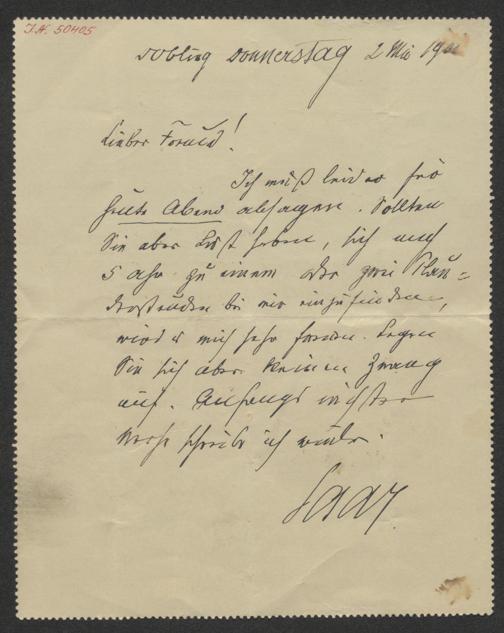 I.N. 50405
Döbling Donnerstag 2 Mai 19
Lieber Freund!
Ich muß leider für
heute Abend absagen. Sollten
Sie aber Lust haben, sich nach
5 Uhr zu einem oder zwei Plau-
derstunden bei mir einzufinden,
wird es mich sehr freuen. Legen
Sie sich aber keinen Zwang
auf. Anfangs nächster
Woche schreibe ich wieder.
Saar